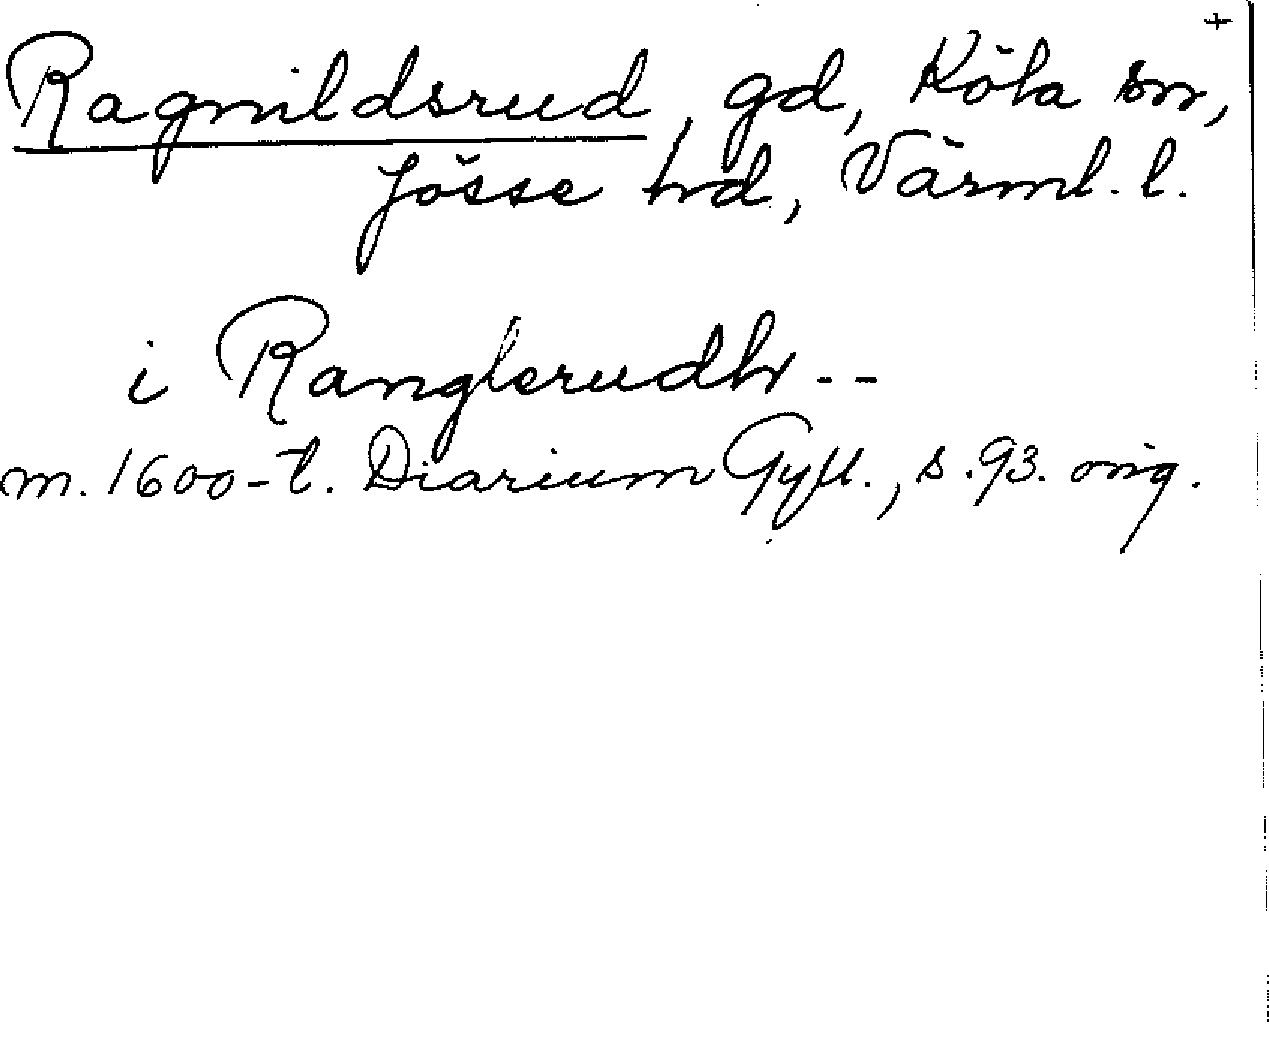 +
Ragnildsrud, gd, Köla sn,
Jösse hd, Värml. l.
i Ranglerudh --
m. 1600-t. Diarium Gyll., s. 93. orig.